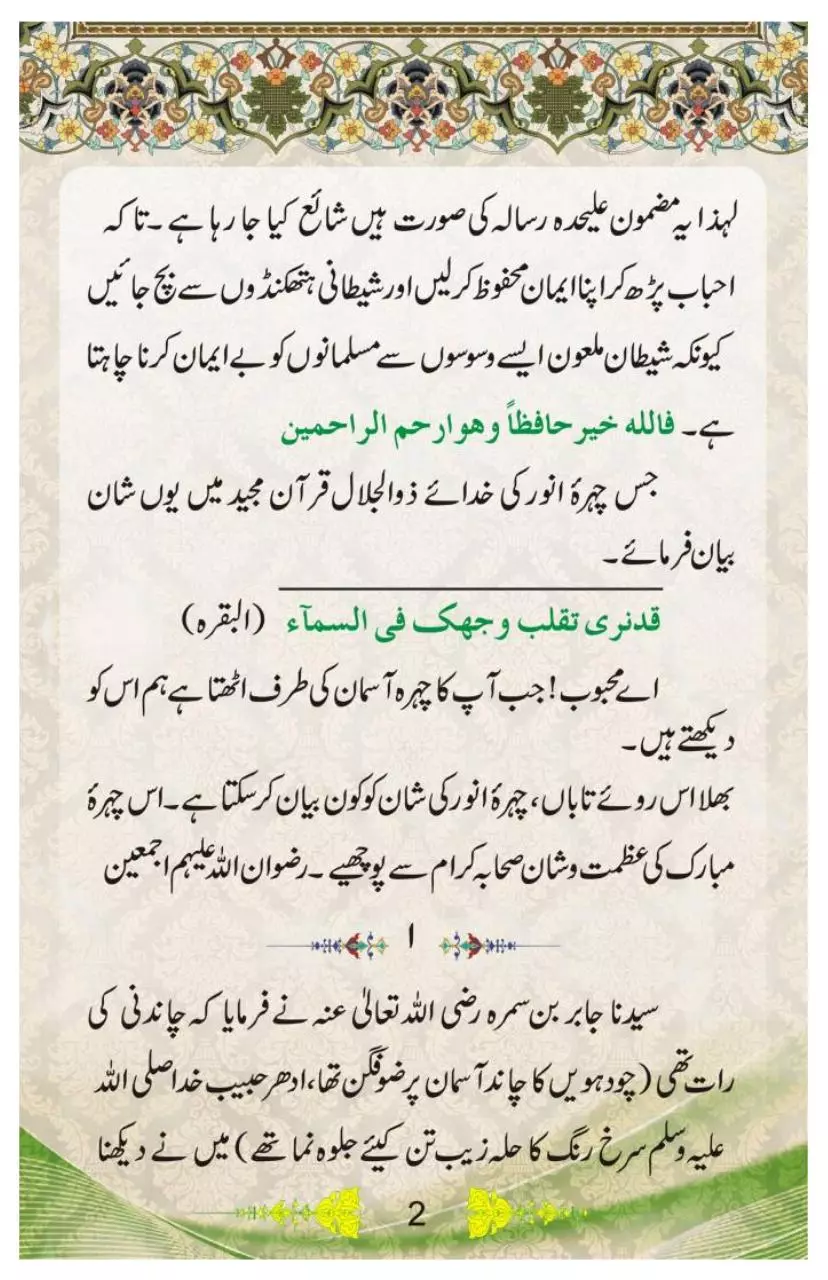 لہذا یہ مضمون علیحدہ رسالہ کی صورت ہیں شائع کیا جا رہا ہے ۔ تا کہ
احباب پڑھ کر اپنا ایمان محفوظ کر لیں اور شیطانی ہتھکنڈوں سے بچ جائیں
کیونکہ شیطان ملعون ایسے وسوسوں سے مسلمانوں کو بے ایمان کرنا چاہتا
ہے ۔ فالله خیر حافظاً وهو ارحم الراحمین
جس چہرۂ انور کی خدائے ذوالجلال قرآن مجید میں یوں شان
بیان فرمائے ۔
قدنری تقلب وجهک فی السمآء (البقرہ)
اے محبوب! جب آپ کا چہرہ آسمان کی طرف اٹھتا ہے ہم اس کو
دیکھتے ہیں ۔
بھلا اس روئے تاباں، چہرۂ انور کی شان کو کون بیان کر سکتا ہے ۔ اس چہرۂ
مبارک کی عظمت و شان صحابہ کرام سے پوچھیے ۔ رضوان اللہ علیہم اجمعین
ا
سیدنا جابر بن سمرہ رضی اللہ تعالیٰ عنہ نے فرمایا کہ چاندنی کی
رات تھی (چودہویں کا چاند آسمان پر ضوفگن تھا، ادھر حبیب خدا صلی اللہ
علیہ وسلم سرخ رنگ کا حلہ زیب تن کیئے جلوہ نما تھے) میں نے دیکھنا
2